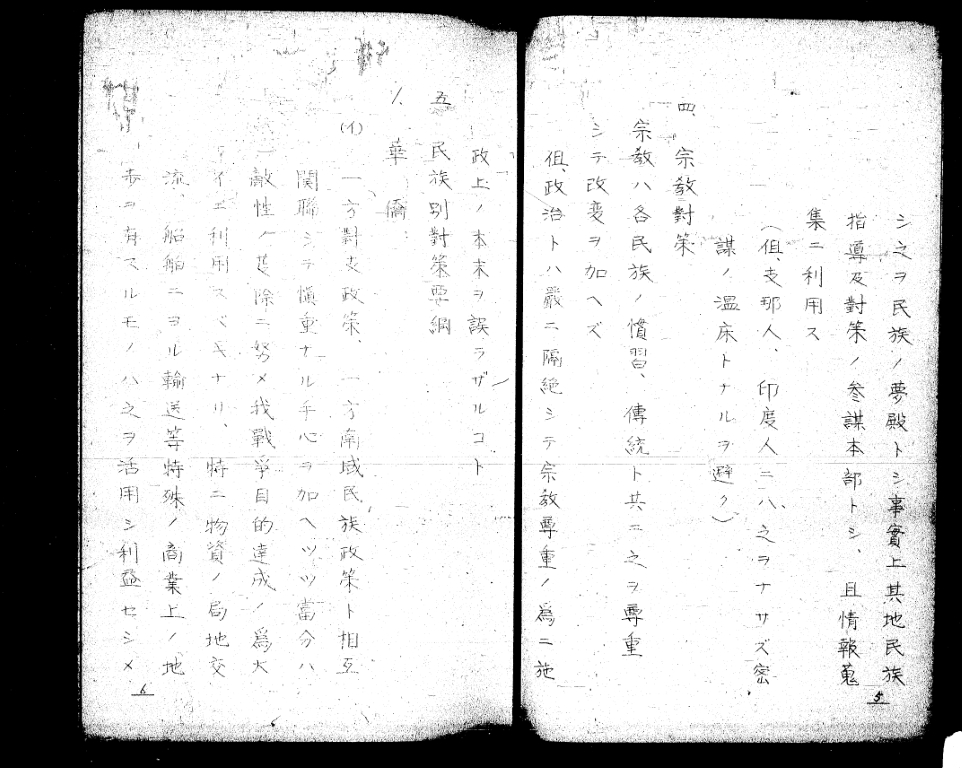 シ之ヲ民族ノ夢殿トシ事實上其地民族
指導及對策ノ参謀本部トシ、且情報蒐
集ニ利用ス
(但、支那人、印度人ニハ之ヲナサズ密
謀ノ温床トナルヲ避ク)
四、宗敎對策
宗敎ハ各民族ノ慣習、傳統ト共ニ之ヲ尊重
シテ改変ヲ加ヘズ
但、政治トハ嚴ニ隔絶シテ宗敎尊重ノ爲ニ施
5
政上ノ本末ヲ誤ラザルコト
五 民族別對策要綱
1、華僑
(イ)、一方對支政策、一方南域民族政策ト相互
関聯シテ愼重ナル手心ヲ加ヘツツ當分ハ
敵性ノ芟除ニ努メ我戰爭目的達成ノ爲大
イニ利用スベキナリ、特ニ物資ノ局地交
流、船舶ニヨル輸送等特殊ノ商業上ノ地
歩ヲ有スルモノハ之ヲ活用シ利益セシメ
6